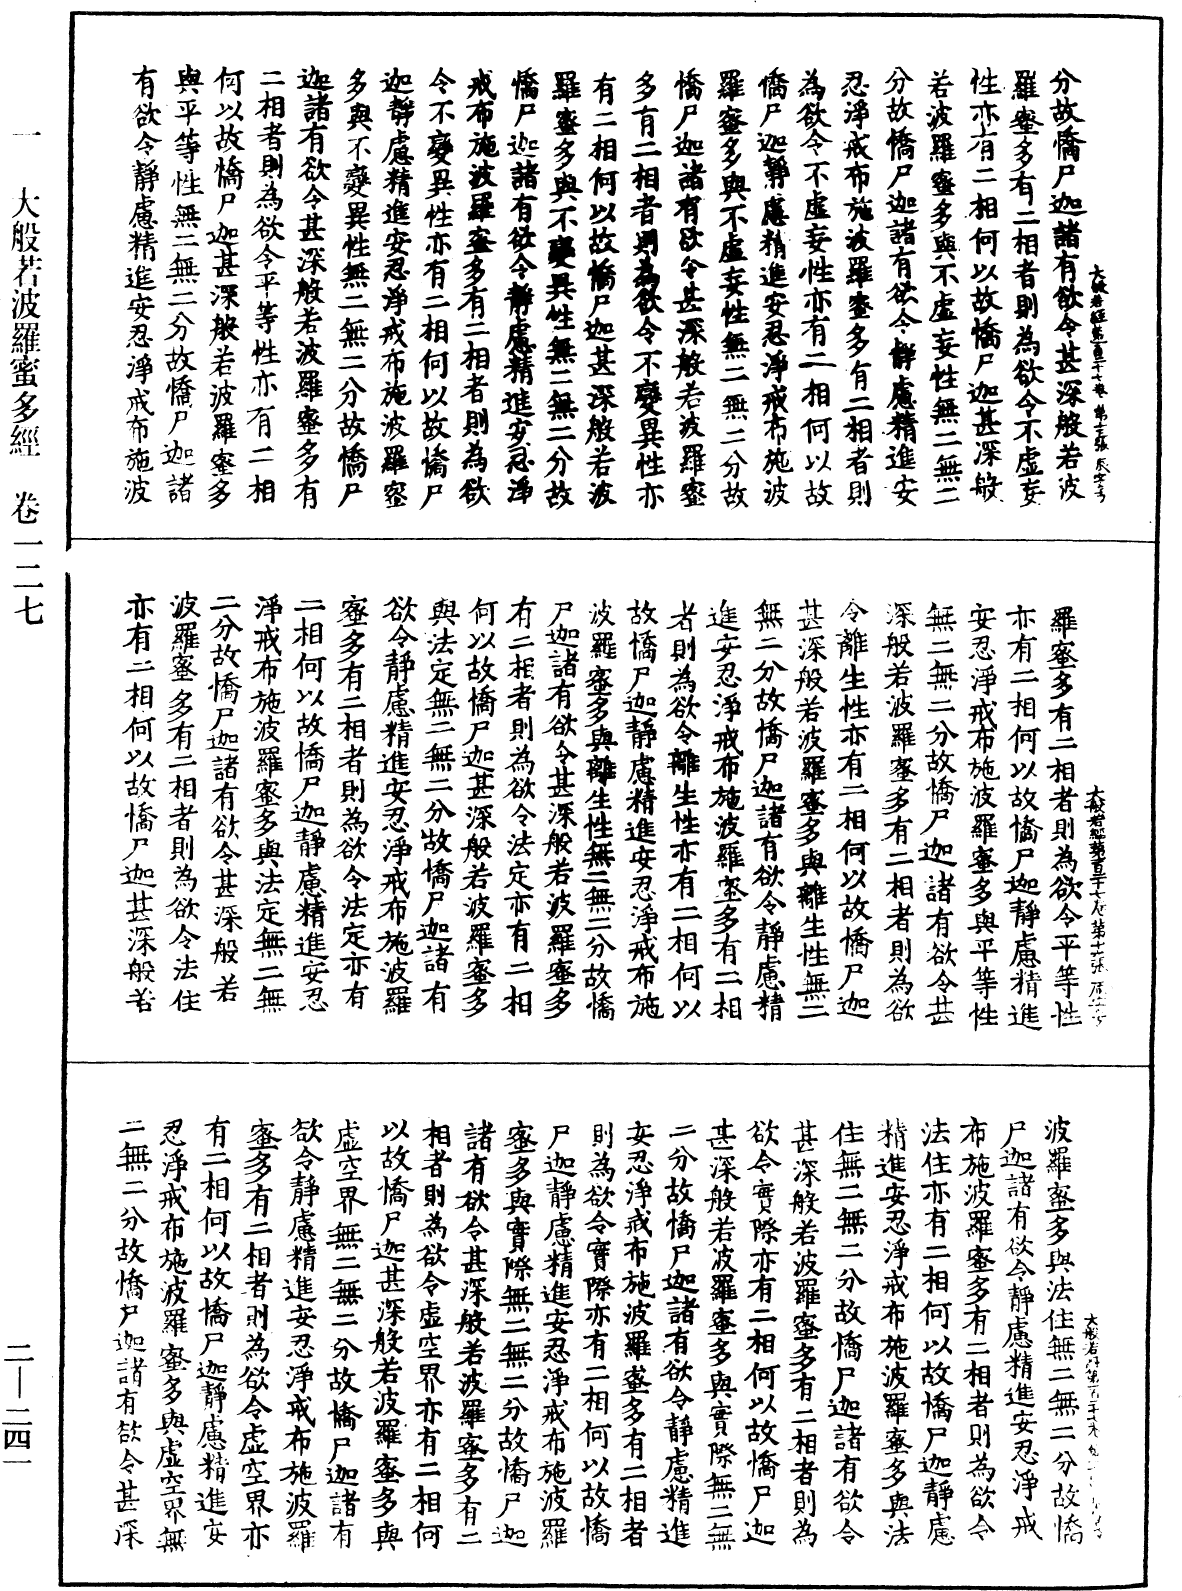 大般若經第一百二十七卷
分故憍尸迦諸有欲令甚深般若波
羅蜜多有二相者則為欲令不虛妄
性亦有二相何以故憍尸迦甚深般
若波羅蜜多與不虛妄性無二無二
分故憍尸迦諸有欲令靜慮精進安
忍淨戒布施波羅蜜多有二相者則
為欲令不虛妄性亦有二相何以故
憍尸迦靜慮精進安忍淨戒布施波
羅蜜多與不虛妄性無二無二分故
憍尸迦諸有欲令甚深般若波羅蜜
多有二相者則為欲令不變異性亦
有二相何以故憍尸迦甚深般若波
羅蜜多與不變異性無二無二分故
憍尸迦諸有欲令靜慮精進安忍淨
戒布施波羅蜜多有二相者則為欲
令不變異性亦有二相何以故憍尸
迦靜慮精進安忍淨戒布施波羅蜜
多與不變異性無二無二分故憍尸
迦諸有欲令甚深般若波羅蜜多有
二相者則為欲令平等性亦有二相
何以故憍尸迦甚深般若波羅蜜多
與平等性無二無二分故憍尸迦諸
有欲令靜慮精進安忍淨戒布施波
羅蜜多有二相者則為欲令平等性
亦有二相何以故憍尸迦靜慮精進
安忍淨戒布施波羅蜜多與平等性
無二無二分故憍尸迦諸有欲令甚
深般若波羅蜜多有二相者則為欲
令離生性亦有二相何以故憍尸迦
甚深般若波羅蜜多與離生性無二
無二分故憍尸迦諸有欲令靜慮精
進安忍淨戒布施波羅蜜多有二相
者則為欲令離生性亦有二相何以
故憍尸迦靜慮精進安忍淨戒布施
波羅蜜多與離生性無二無二分故憍
尸迦諸有欲令甚深般若波羅蜜多
有二相者則為欲令法定亦有二相
何以故憍尸迦甚深般若波羅蜜多
與法定無二無二分故憍尸迦諸有
欲令靜慮精進安忍淨戒布施波羅
蜜多有二相者則為欲令法定亦有
二相何以故憍尸迦靜慮精進安忍
淨戒布施波羅蜜多與法定無二無
二分故憍尸迦諸有欲令甚深般若
波羅蜜多有二相者則為欲令法住
亦有二相何以故憍尸迦甚深般若
波羅蜜多與法住無二無二分故憍
尸迦諸有欲令靜慮精進安忍淨戒
布施波羅蜜多有二相者則為欲令
法住亦有二相何以故憍尸迦靜慮
精進安忍淨戒布施波羅蜜多與法
住無二無二分故憍尸迦諸有欲令
甚深般若波羅蜜多有二相者則為
欲令實際亦有二相何以故憍尸迦
甚深般若波羅蜜多與實際無二無
二分故憍尸迦諸有欲令靜慮精進
安忍淨戒布施波羅蜜多有二相者
則為欲令實際亦有二相何以故憍
尸迦靜慮精進安忍淨戒布施波羅
蜜多與實際無二無二分故憍尸迦
諸有欲令甚深般若波羅蜜多有二
相者則為欲令虛空界亦有二相何
以故憍尸迦甚深般若波羅蜜多與
虛空界無二無二分故憍尸迦諸有
欲令靜慮精進安忍淨戒布施波羅
蜜多有二相者則為欲令虛空界亦
有二相何以故憍尸迦靜慮精進安
忍淨戒布施波羅蜜多與虛空界無
二無二分故憍尸迦諸有欲令甚深
一 大般若波羅蜜多經 卷一二七
二—二四一